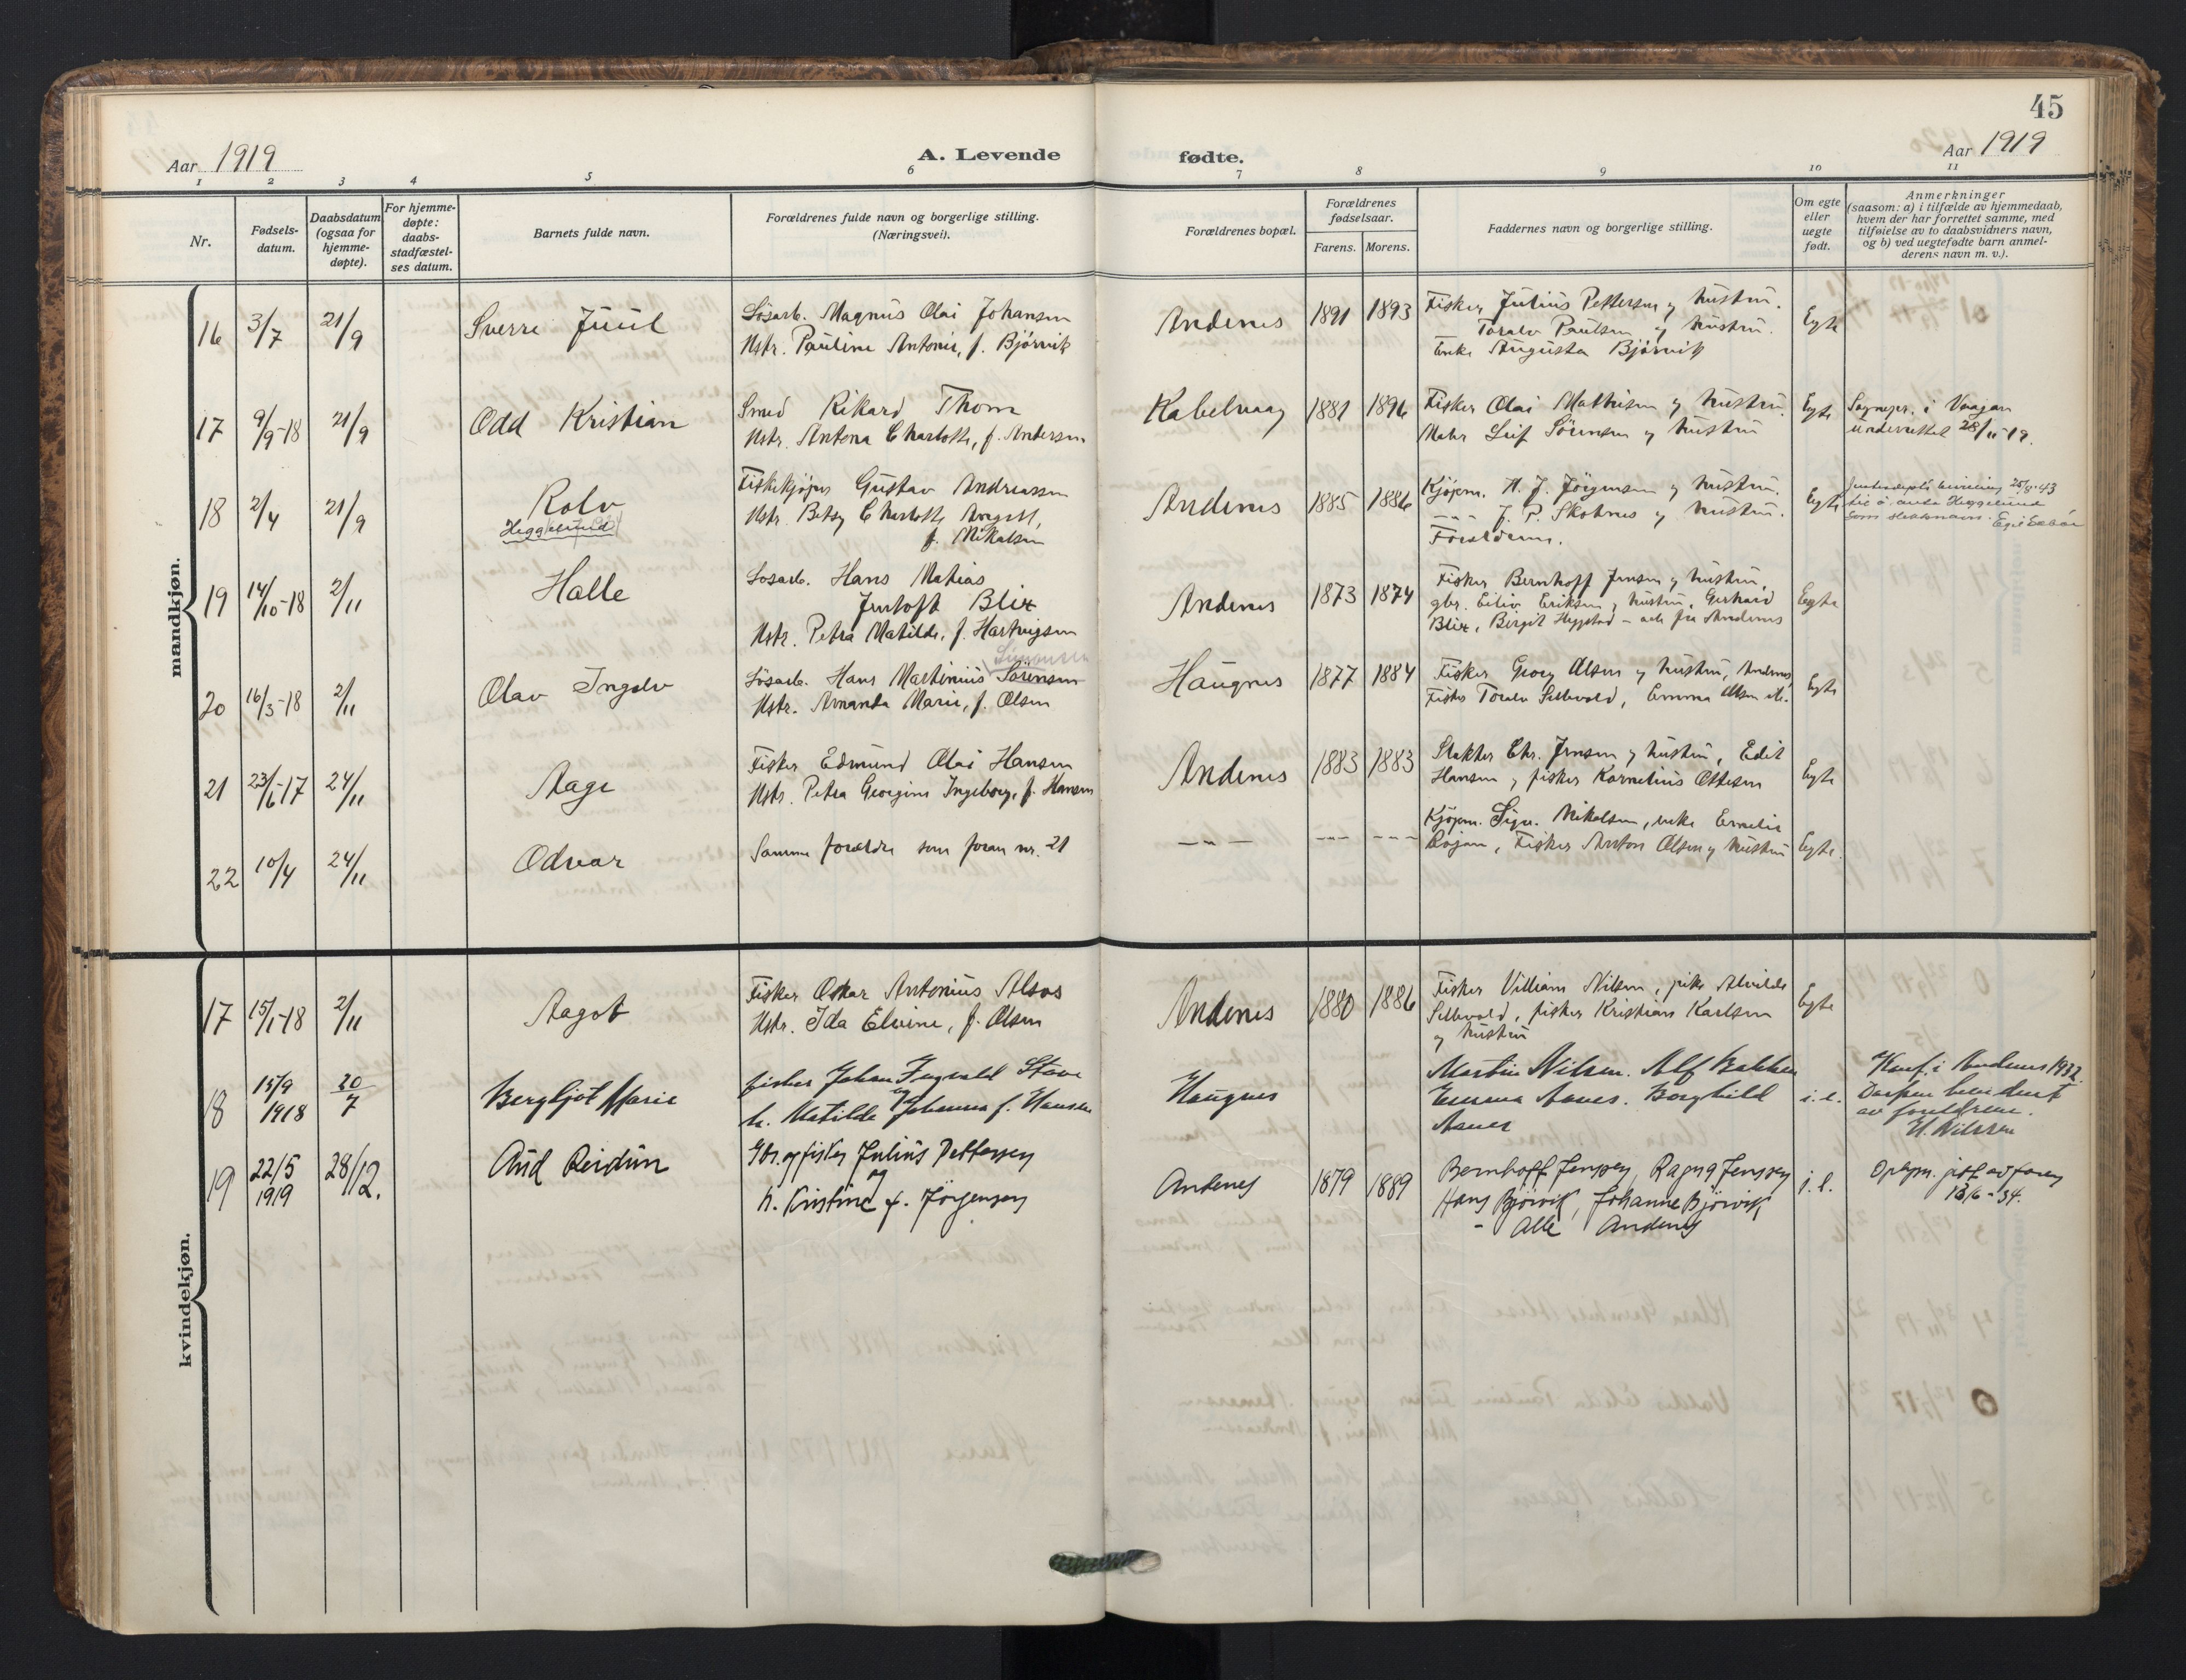 45
Aar 1919
A. Levende
fødte.
Aar 1919
1 2 3 4 5 6 7 8 9 10 11
Nr.
Fødsels-
datum.
Daabsdatum
(ogsaa for
hjemme-
døpte).
For hjemme-
døpte:
daabs-
stadfæstel-
ses datum.
Barnets fulde navn.
Forældrenes fulde navn og borgerlige stilling.
(Næringsvei).
Forældrenes bopæl.
Forældrenes
fødselsaar.
Farens. Morens.
Faddernes navn og borgerlige stilling.
Om egte
eller
uegte
født.
Anmerkninger
(saasom: a) i tilfælde av hjemmedaab,
hvem der har forrettet samme, med
tilføielse av to daabsvidners navn,
og b) ved uegtefødte barn anmel-
derens navn m. v.).
mandkjøn.
16 3/7 21/9 Sverre Juul
Løsarb. Magnus Olai Johansen
Hstr. Pauline Antonie, f. Bjørvik
Andenes 1891 1893
Fisker Julius Pettersen og hustru.
Toralv Paulsen og hustru.
Enke Augusta Bjørvik
Egte
17 9/9-18 21/9 Odd Kristian
Smed Rikard Thom
Hstr. Antona Charlotte, f. Andersen
Kabelvaag 1881 1896
Fisker Olai Mathisen og hustru.
Maler Leif Sørensen og hustru
Egte
Sognepr. i Vaagan
underrettet 28/11-19.
18 2/4 21/9 Rolv
Heggelund
Fiskekjøper Gustav Andreassen
Hstr. Betsy Charlotte Margit,
f. Mikalsen
Andenes 1885 1886
Kjøpm. H. J. Jørgensen og hustru.
--- J. P. Skotnes og hustru.
Forældrene.
Egte
bevilling 25/8-43
til å anta Heggelund
som slektsnavn.
19 14/10-18 2/11 Halle
Løsarb. Hans Matias
Jentoft Blix
Hstr. Petra Matilde, f. Hartvigsen
Andenes 1873 1874
Fisker Bernhoff Jensen og hustru,
gbr. Eiliv Eriksen og hustru, Gerhard
Blix, Bergit Heggstad - alle fra Andenes
Egte
20 16/3-18 2/11 Olav Ingolv
Simonsen
Løsarb. Hans Martinius Sørensen
Hstr. Amanda Marie, f. Olsen
Haugnes 1877 1884
Fisker Georg Olsen og hustru, Andenes
Fisker Toralv Sellevold, Emma Olsen
Egte
21 23/6-17 24/11 Aage
Fisker Edmund Olai Hansen
Hstr. Petra Georgine Ingeborg, f. Hansen
Andenes 1883 1883
Slakter Chr. Jensen og hustru, Edit
Hansen og fisker Kornelius Ottesen
Egte
22 10/4 24/11 Odvar
Samme forældre som foran nr. 21
--- --- ---
Kjøpm. Sigv. Mikalsen, enke Emelie
Fisker Anton Olsen og hustru
Egte.
kvindekjøn.
17 15/1-18 2/11 Aagot
Fisker Oskar Antonius Alsos
Hstr. Ida Elvine, f. Olsen
Andenes 1880 1886
Fisker Villiam Nilsen, pike Alvilde
Sellevold, fisker Kristian Karlsen
og hustru
Egte
18 15/9 1918 20/7 Bergljot Marie
fisker Johan Ingvald Stave
og
h. Matilde Johanna f. Hansen
Haugnes
Martin Nilsen. Alf Bakken
Emma Aanes. Borghild
Aanes
i. e.
Konf. i Andenes 1932.
Daapen bevidnet
av foreldrene.
H. Nilssen
19 22/5 1919 28/12. Aud Reidun
Gbr. og fisker Julius Pettersen
og
h. Kristine f. Jørgensen
Andenes 1879 1889
Bernhoff Jensen, Ragna Jenssen
Hans Bjørvik, Johanne Bjørvik
- Alle Andenes
i. e.
Oplysn. gitt av faren
13/6-34.